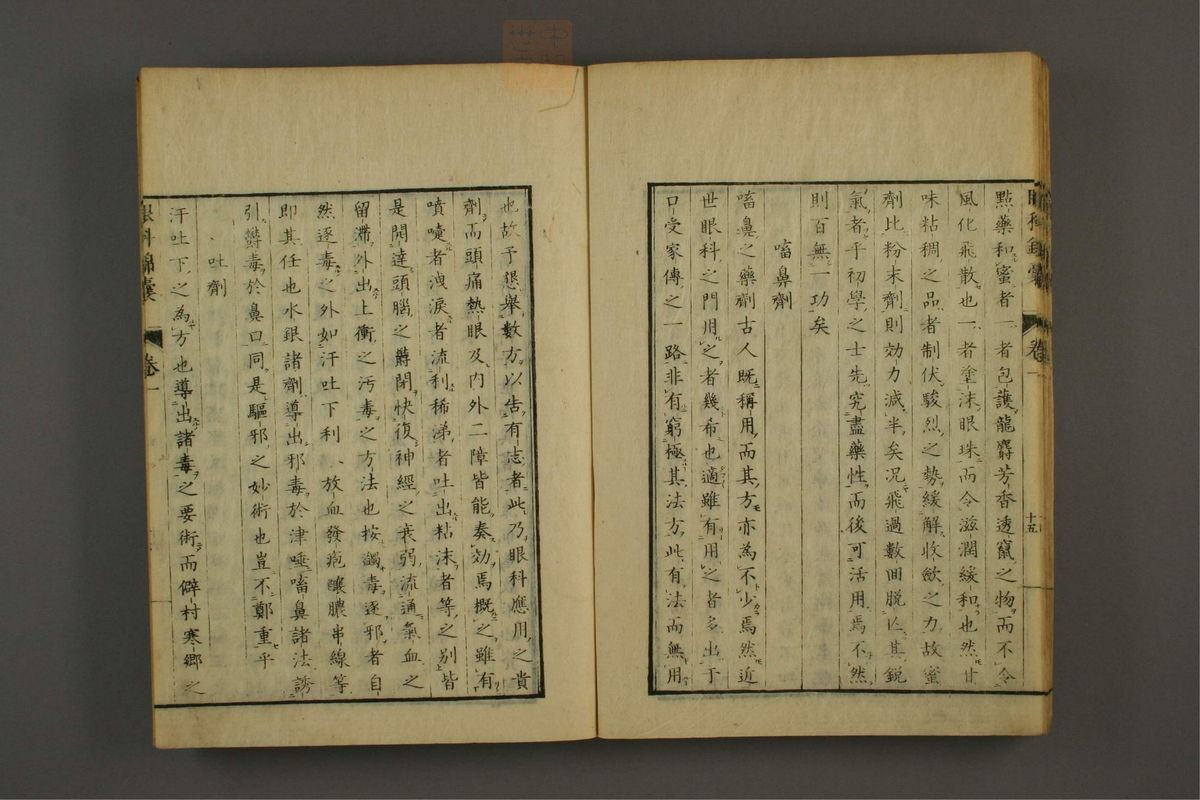 眼科錦囊 卷一 十五
點藥和蜜者一者包護龍麝芳香透竄之物而不令
風化飛散也一者塗沫眼珠而令滋潤緩和也然甘
味粘稠之品者制伏駿烈之勢緩解收斂之力故蜜
劑比粉末劑則効力減半矣況飛過數回脫亡其銳
氣者乎初學之士先究盡藥性而後可活用焉不然
則百無一功矣
嗜鼻劑
嗜鼻之藥劑古人既稱用而其方亦為不少焉然近
世眼科之門用之者幾布也適雖有用之者多出于
口受家傳之一路非有窮極其法方此有法而無用
也故予懇舉數方以告有志者此乃眼科應用之貴
劑而頭痛熱眼及內外二障皆能奏効焉概之雖有
噴嚏者洩淚者流利稀涕者吐出粘沫者等之別皆
是開達頭腦之欝閉快復神經之衰弱流通氣血之
留滯外出上衝之污毒之方法也按蠲毒逐邪者自
然逐毒之外如汗吐下利放血發疱釀膿串線等
即其任也水銀諸劑導出邪毒於津唾嗜鼻諸法誘
引欝毒於鼻口同是驅邪之妙術也豈不鄭重乎
吐劑
汗吐下之為方也導出諸毒之要術而僻村寒鄉之
眼科錦囊 卷一